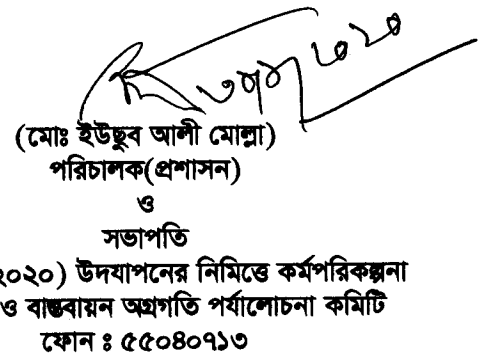 (মোঃ ইউছুব আলী মোল্লা)
পরিচালক(প্রশাসন)
ও
সভাপতি
২০২০) উদযাপনের নিমিত্তে কর্মপরিকল্পনা
ও বাস্তবায়ন অগ্রগতি পর্যালোচনা কমিটি
ফোন ঃ ৫৫০৪০৭১৩